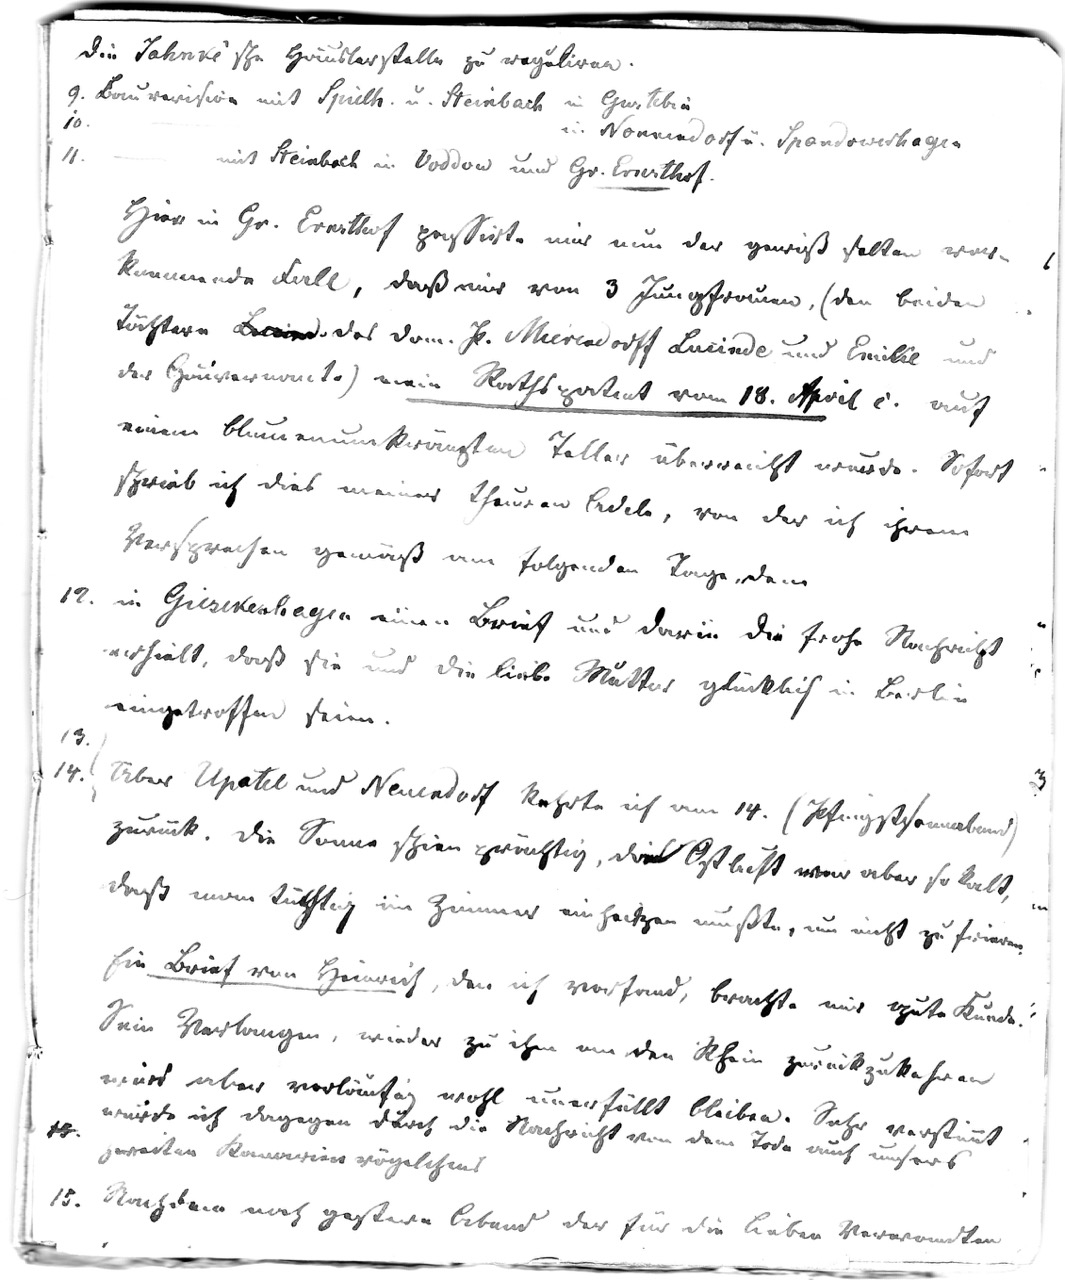 die Jahnke'sche Häuslerstelle zu reguliren.
9. Baurevision mit Spielh. u. Steinbach in Gustebin
10. in Nonnendorf u. Spandowerhagen
11. mit Steinbach in Voddow und Gr. Ernsthof.
Hier in Gr. Ernsthof passirte mir nun der gewiß selten vor-
kommende Fall, daß mir von 3 Jungfrauen, (den beiden
Töchtern des Dom. P. Meierdorff Lucinde und Emilie und
der Gouvernante) mein Rathspatent vom 18. April c. auf
einem blumenumkränzten Teller überreicht wurde. Sofort
schrieb ich dies meiner theuren Adele, von der ich ihrem
Versprechen gemäß am folgenden Tage, dem
12. in Gieszkenhagen einen Brief und darin die frohe Nachricht
erhielt, daß sie und die liebe Mutter glücklich in Berlin
eingetroffen seien.
13.
14. Über Upatel und Neuendorf kehrte ich am 14. (Pfingstsonnabend)
zurück. Die Sonne schien prächtig, die Ostluft war aber so kalt,
daß man tüchtig im Zimmer einheitzen mußte, um nicht zu frieren.
Ein Brief von Heinrich, den ich vorfand, brachte mir gute Kunde.
Sein Verlangen, wieder zu ihm an den Rhein zurückzukehren
wird aber vorläufig wohl unerfüllt bleiben. Sehr verstimmt
wurde ich dagegen durch die Nachricht von dem Tode auch unsers
zweiten Kanarienvögelchens
15. Nachdem noch gestern Abend der für die lieben Verwandten